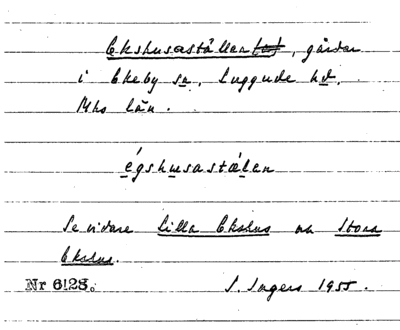 Ekshusaställen, gårdar
i Ekeby sn, Luggude hd,
Mhs län.
égshusastälen
Se vidare Lilla Ekshus och Stora
Ekshus.
Nr 6128. I. Ingers 1955.